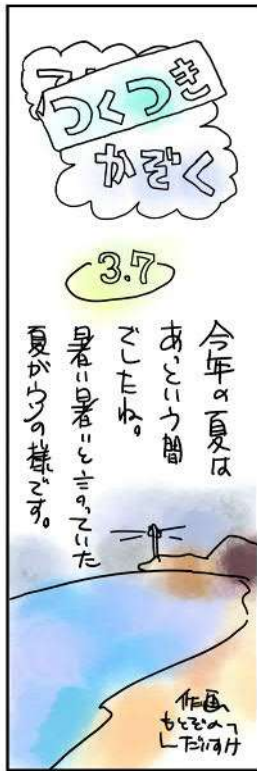 つくつき
かぞく
3.7
今年の夏は
あっという間
でしたね。
暑い暑いと言っていた
夏がウソの様です。
作画、
もとぞの
だいすけ